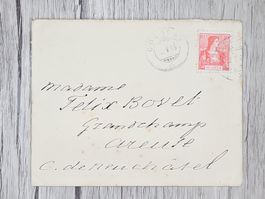 Madame
Félix Bovet
Grandchamp
Areuse
C. de Neuchâtel